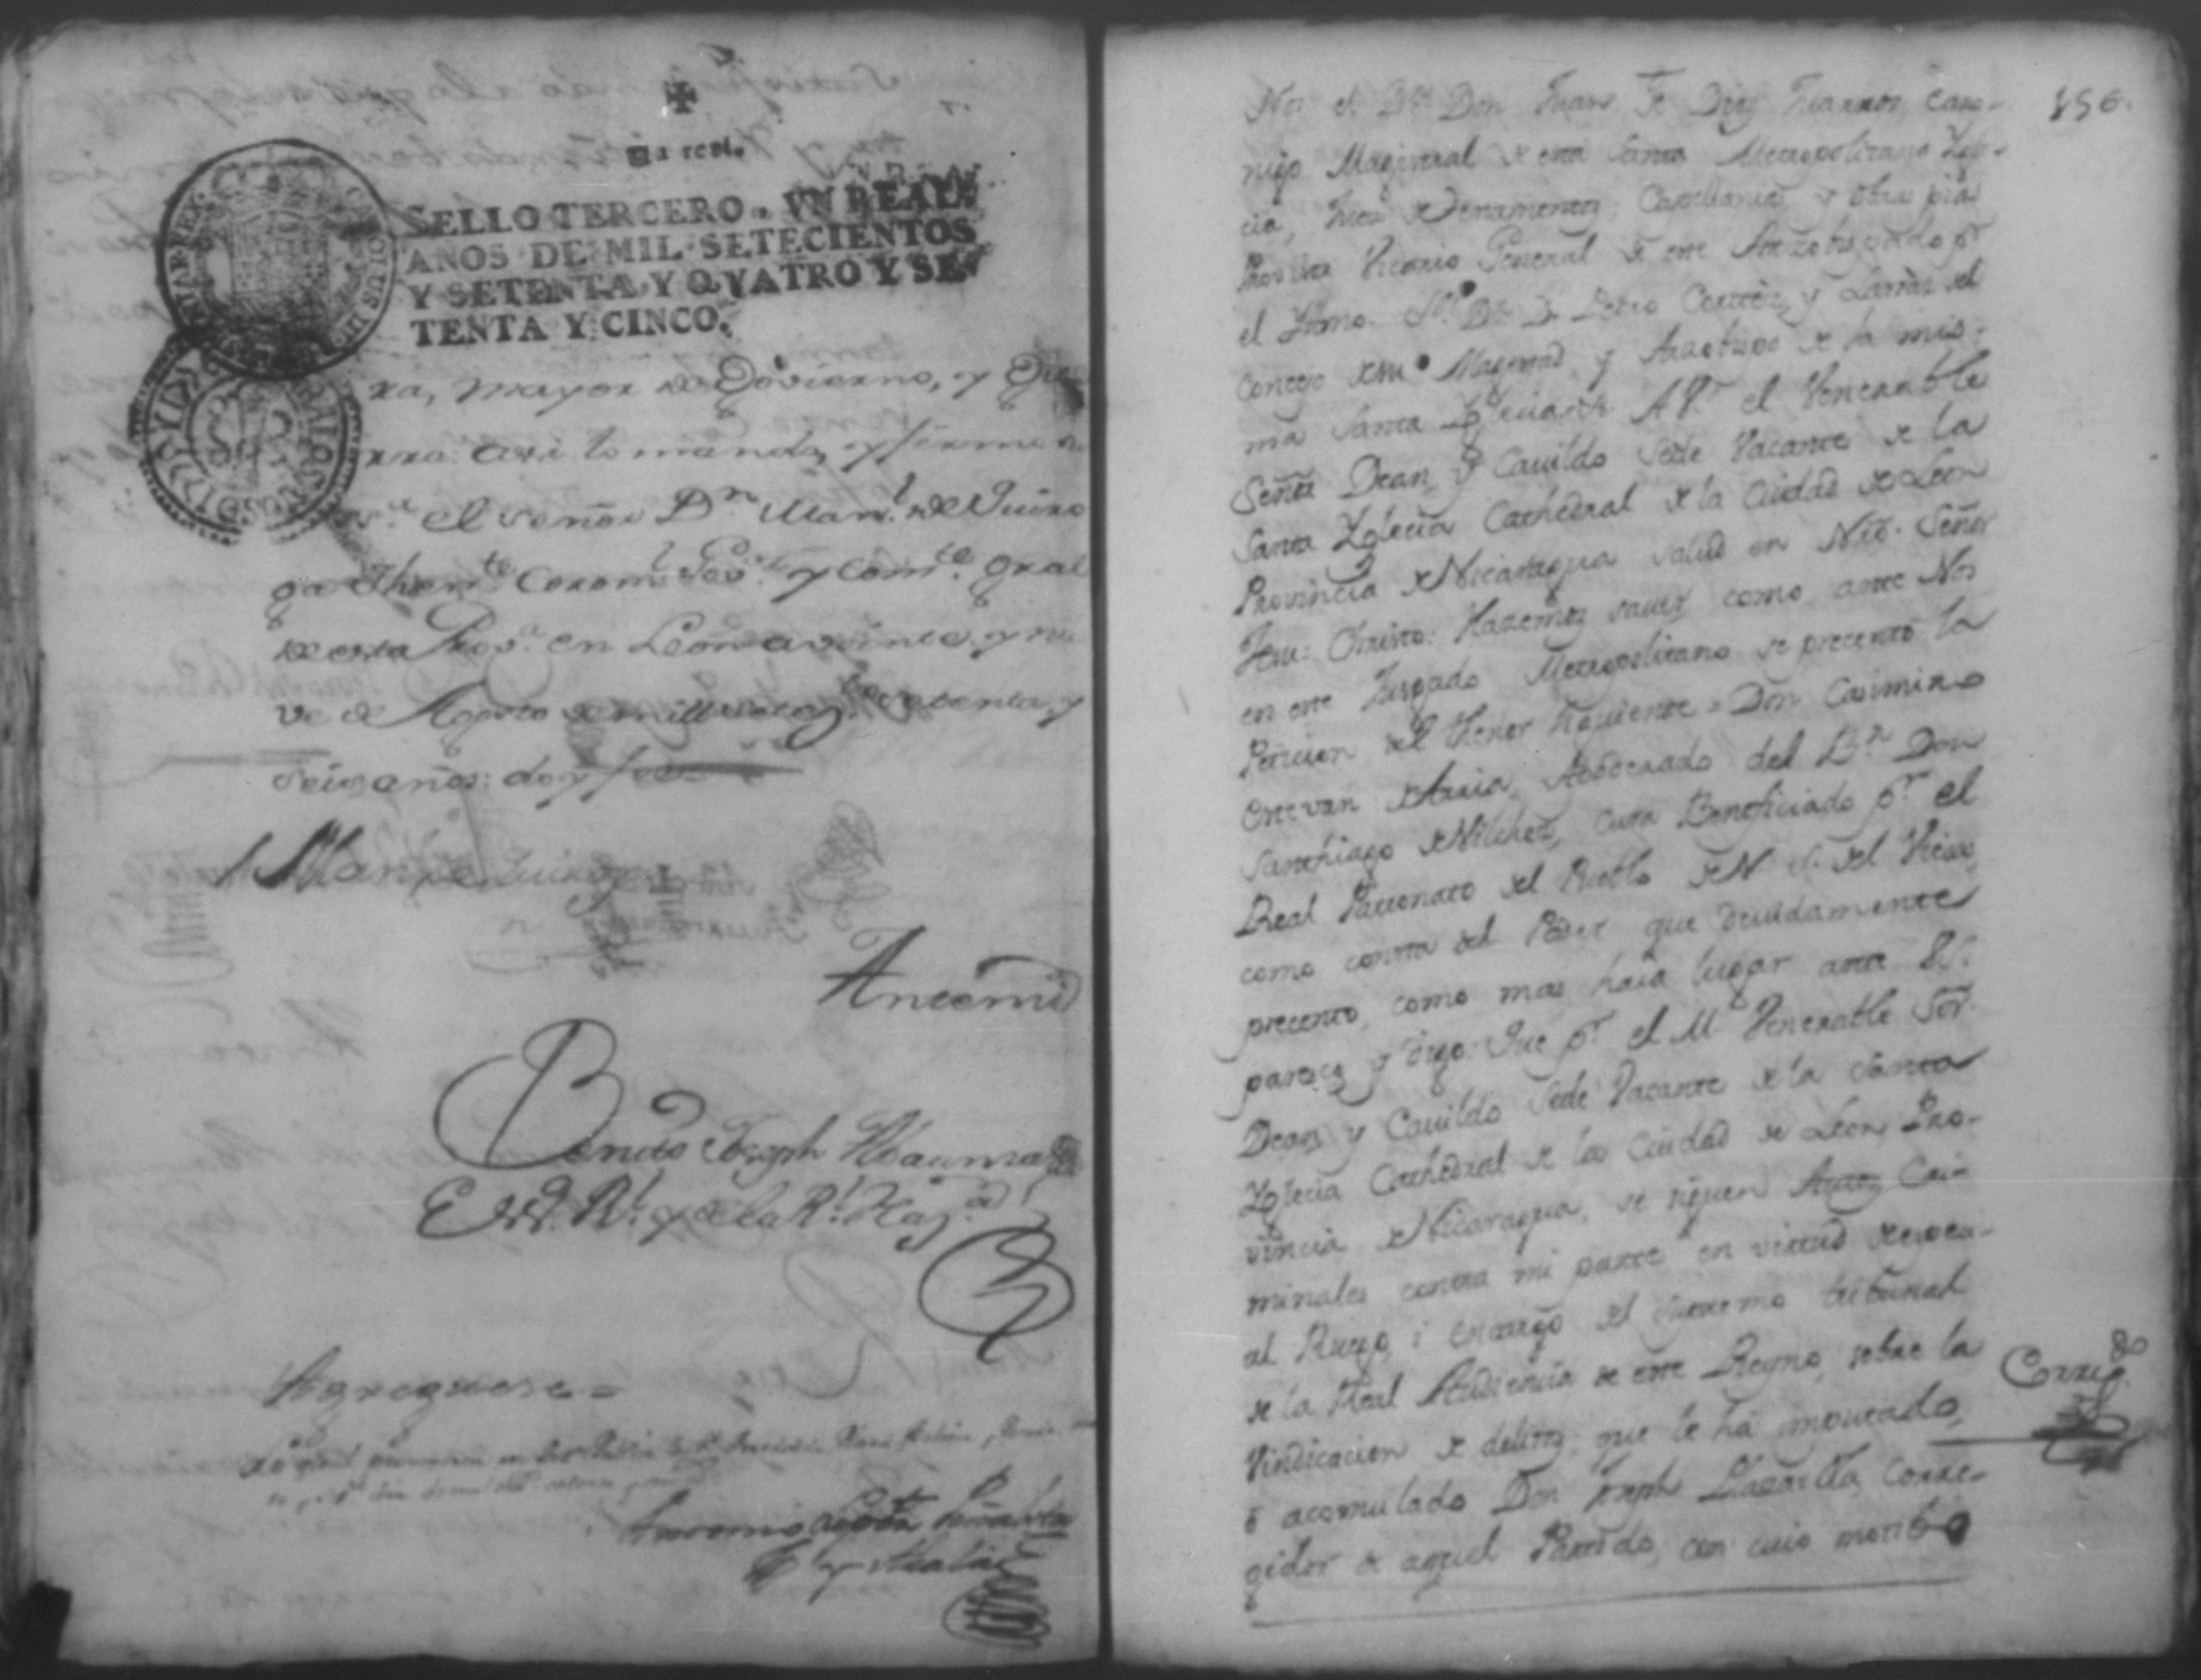 Un real.
SELLO TERCERO. VN REAL.
AÑOS DE MIL SETECIENTOS
Y SETENTA Y QVATRO Y SE-
TENTA Y CINCO.
rra, mayor de Govierno, y Gue
rra asi lo mando, y firmo
el señor Dn. Manl. de Quiro
ga Thente. Coronl. Govr. y Comte. gral
de esta Prova. en Leon a veinte y nu
ve de Agosto de mill setecs. setenta, y
seis años: doy fee=
Manl. de Quiroga
Antemi
Benito Joseph
Essno. Rl. y de la Rl. Hazda.
Agreguese=
Antonio
156.
Nos el Dor. Don Juan Je. Dios Juarros Cano-
nigo Magistral de esta Santa Metropolitana Ygle-
cia, Juez de Testamentos, Capellanias, y obra pia
Provisor Vicario General de este Arzobispado pr.
el Yllmo. Sr. Dr. Dn. Pedro Cortes, y Larraz del
Concejo de su Magestad, y Arzobispo de la mis-
ma Santa Yglecia &a. A VS. el Venerable
Señor Dean, y Cavildo Sede Vacante de la
Santa Yglecia Cathedral de la Ciudad de Leon
Provincia de Nicaragua salud en Nro. Señor
Jesu= Christo: Hazemos saver, como ante Nos
en este Juzgado Metropolitano se precentó la
Peticion del thenor siguiente= Don Casimiro
Estevan de Arria, Apoderado del Br. Don
Santhiago de Vilches, Cura Beneficiado pr. el
Real Patronato del Pueblo de N. S. del Viejo,
como consta del Poder que devidamente
precento, como mas haia lugar ante VS.
paresco, y digo: Que pr. el M. Venerable Sor.
Dean, y Cavildo Sede Vacante de la Santa
Yglecia Cathedral de la Ciudad de Leon Pro-
vincia de Nicaragua, se siguen Autos Cri-
minales contra mi parte en virtud de
al Ruego, i encargo del Supremo tribunal
de la Real Audiencia de este Reyno, sobre la
vindicacion de delitos, que le há imputado,
ó acomulado Don Joseph Plazaola, Corre-
gidor de aquel Partido, con cuio motibo
Corregdo.